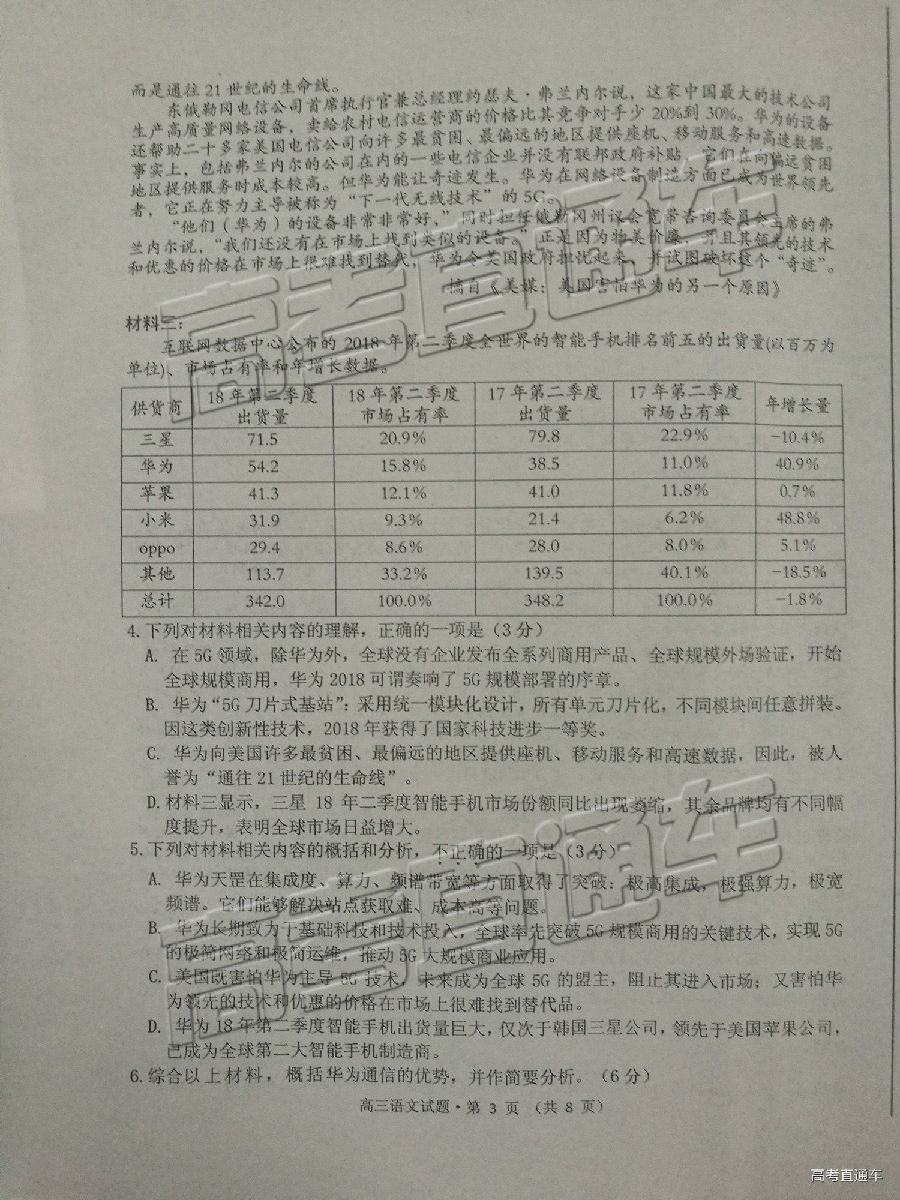 而是通往21世纪的生命线。
东俄勒冈电信公司首席执行官兼总经理约瑟夫·弗兰内尔说，这家中国最大的技术公司
生产高质量网络设备，卖给农村电信运营商的价格比其竞争对手少20%到30%。华为的设备
还帮助二十多家美国电信公司向许多最贫困、最偏远的地区提供座机、移动服务和高速数据。
事实上，包括弗兰内尔的公司在内的一些电信企业并没有联邦政府补贴，它们在向偏远贫困
地区提供服务时成本较高。但华为能让奇迹发生。华为在网络设备制造方面已成为世界领先
者，它正在努力主导被称为“下一代无线技术”的5G。
“他们（华为）的设备非常非常好，”同时担任俄勒冈州议会宽带咨询委员会主席的弗
兰内尔说，“我们还没有在市场上找到类似的设备。”正是因为物美价廉，并且其领先的技术
和优惠的价格在市场上很难找到替代，华为令美国政府担忧起来，并试图破坏这个“奇迹”。
摘自《美媒：美国害怕华为的另一个原因》
材料三：
互联网数据中心公布的2018年第二季度全世界的智能手机排名前五的出货量(以百万为
单位)、市场占有率和年增长数据。
供货商 18年第二季度出货量 18年第二季度市场占有率 17年第二季度出货量 17年第二季度市场占有率 年增长量
三星 71.5 20.9% 79.8 22.9% -10.4%
华为 54.2 15.8% 38.5 11.0% 40.9%
苹果 41.3 12.1% 41.0 11.8% 0.7%
小米 31.9 9.3% 21.4 6.2% 48.8%
oppo 29.4 8.6% 28.0 8.0% 5.1%
其他 113.7 33.2% 139.5 40.1% -18.5%
总计 342.0 100.0% 348.2 100.0% -1.8%
4.下列对材料相关内容的理解，正确的一项是（3分）
A. 在5G领域，除华为外，全球没有企业发布全系列商用产品、全球规模外场验证，开始
全球规模商用，华为2018可谓奏响了5G规模部署的序章。
B. 华为“5G刀片式基站”：采用统一模块化设计，所有单元刀片化，不同模块间任意拼装。
因这类创新性技术，2018年获得了国家科技进步一等奖。
C. 华为向美国许多最贫困、最偏远的地区提供座机、移动服务和高速数据，因此，被人
誉为“通往21世纪的生命线”。
D.材料三显示，三星18年二季度智能手机市场份额同比出现萎缩，其余品牌均有不同幅
度提升，表明全球市场日益增大。
5.下列对材料相关内容的概括和分析，不正确的一项是（3分）
A. 华为天罡在集成度、算力、频谱带宽等方面取得了突破：极高集成，极强算力，极宽
频谱。它们能够解决站点获取难、成本高等问题。
B. 华为长期致力于基础科技和技术投入，全球率先突破5G规模商用的关键技术，实现5G
的极简网络和极简运维，推动5G大规模商业应用。
C. 美国既害怕华为主导5G技术，未来成为全球5G的盟主，阻止其进入市场；又害怕华
为领先的技术和优惠的价格在市场上很难找到替代品。
D. 华为18年第二季度智能手机出货量巨大，仅次于韩国三星公司，领先于美国苹果公司，
已成为全球第二大智能手机制造商。
6.综合以上材料，概括华为通信的优势，并作简要分析。（6分）
高三语文试题·第3页（共8页）
高考直通车
高考直通车
高考直通车